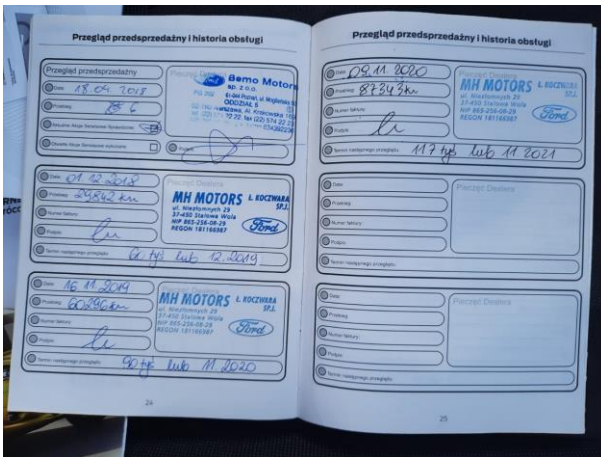 Przegląd przedsprzedażny i historia obsługi
Przegląd przedsprzedażny
Data: 18.04.2018
Przebieg: 6
Aktualne Akcje Serwisowe Sprawdzone
Otwarte Akcje Serwisowe wykonane
Podpis:
Pieczęć
Ford Bemo Motors
sp. z o.o.
ODDZIAŁ 5
Data: 01.12.2018
Przebieg: 29842 km
Numer faktury:
Podpis:
Termin następnego przeglądu: 60 tyś lub 12.2019
Pieczęć Dealera
MH MOTORS Ł. KOCZWARA SP.J.
ul. Niezłomnych 29
37-450 Stalowa Wola
NIP 865-256-08-29
REGON 181166987
Ford
Data: 16.11.2019
Przebieg: 60296 km
Numer faktury:
Podpis:
Termin następnego przeglądu: 90 tyś lub 11.2020
MH MOTORS Ł. KOCZWARA SP.J.
ul. Niezłomnych 29
37-450 Stalowa Wola
NIP 865-256-08-29
REGON 181166987
Ford
24
Przegląd przedsprzedażny i historia obsługi
Data: 09.11.2020
Przebieg: 87343 km
Numer faktury:
Podpis:
Termin następnego przeglądu: 117 tyś lub 11.2021
Pieczęć Dealera
MH MOTORS Ł. KOCZWARA SP.J.
ul. Niezłomnych 29
37-450 Stalowa Wola
NIP 865-256-08-29
REGON 181166987
Ford
Data:
Przebieg:
Numer faktury:
Podpis:
Termin następnego przeglądu:
Pieczęć Dealera
Data:
Przebieg:
Numer faktury:
Podpis:
Termin następnego przeglądu:
Pieczęć Dealera
25